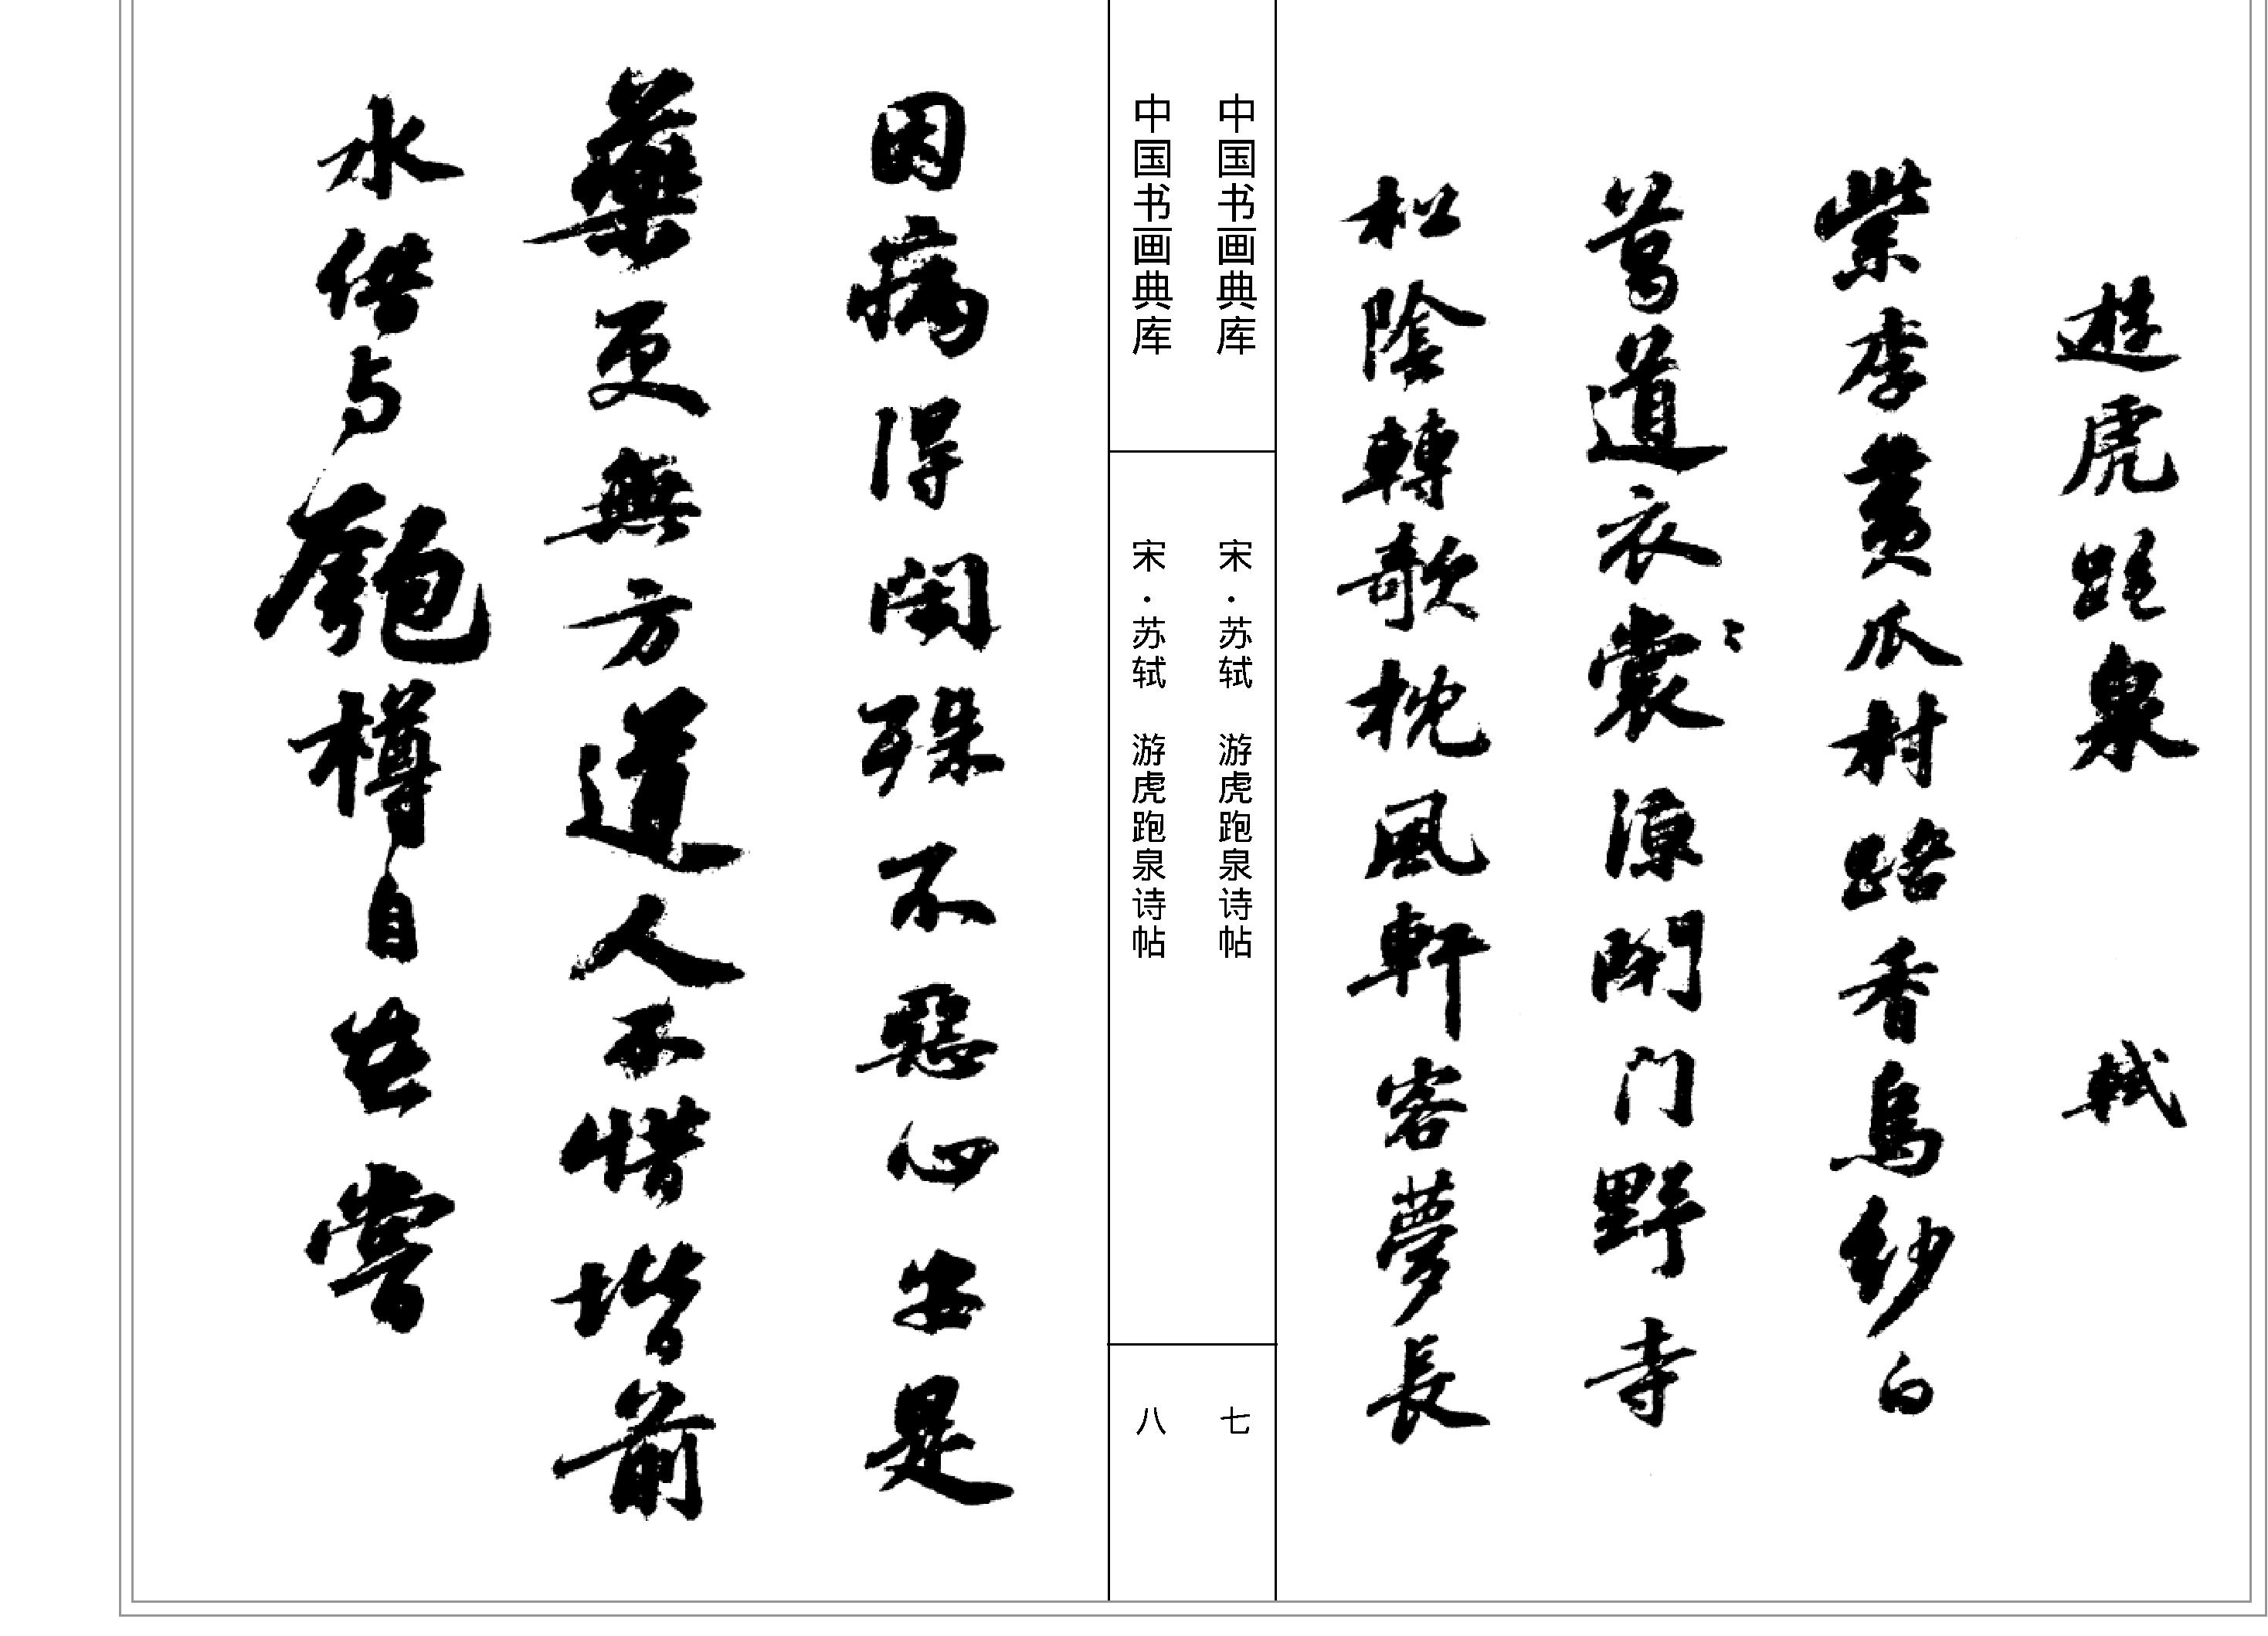 遊虎跑泉 軾
紫李黃瓜村路香烏紗白
葛道衣裳〻涼閉门野寺
松陰轉欹枕風軒客夢長
中国书画典库 宋·苏轼 游虎跑泉诗帖 七
中国书画典库 宋·苏轼 游虎跑泉诗帖 八
因病得閑殊不惡心安是
藥更無方道人不惜堦前
水借与匏樽自在嘗